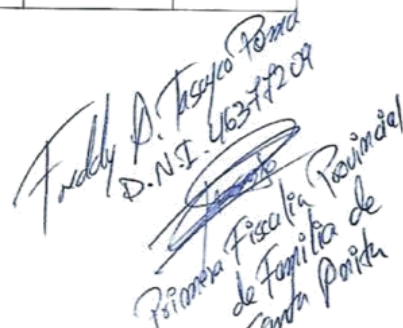 Freddy A. Tasayco Poma
D.N.I. 46377209
Primera Fiscalia Provincial
de Familia de
Santa Anita